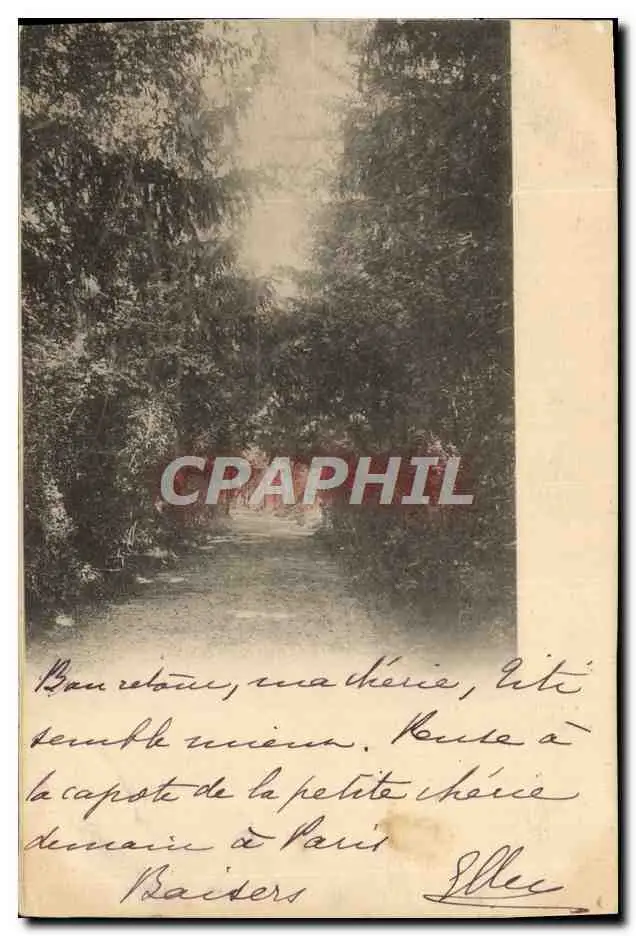 CPAPHIL
Bon retour, ma chérie, Titi
semble mieux. Pense à
la capote de la petite chérie
demain à Paris
Baisers Ellen